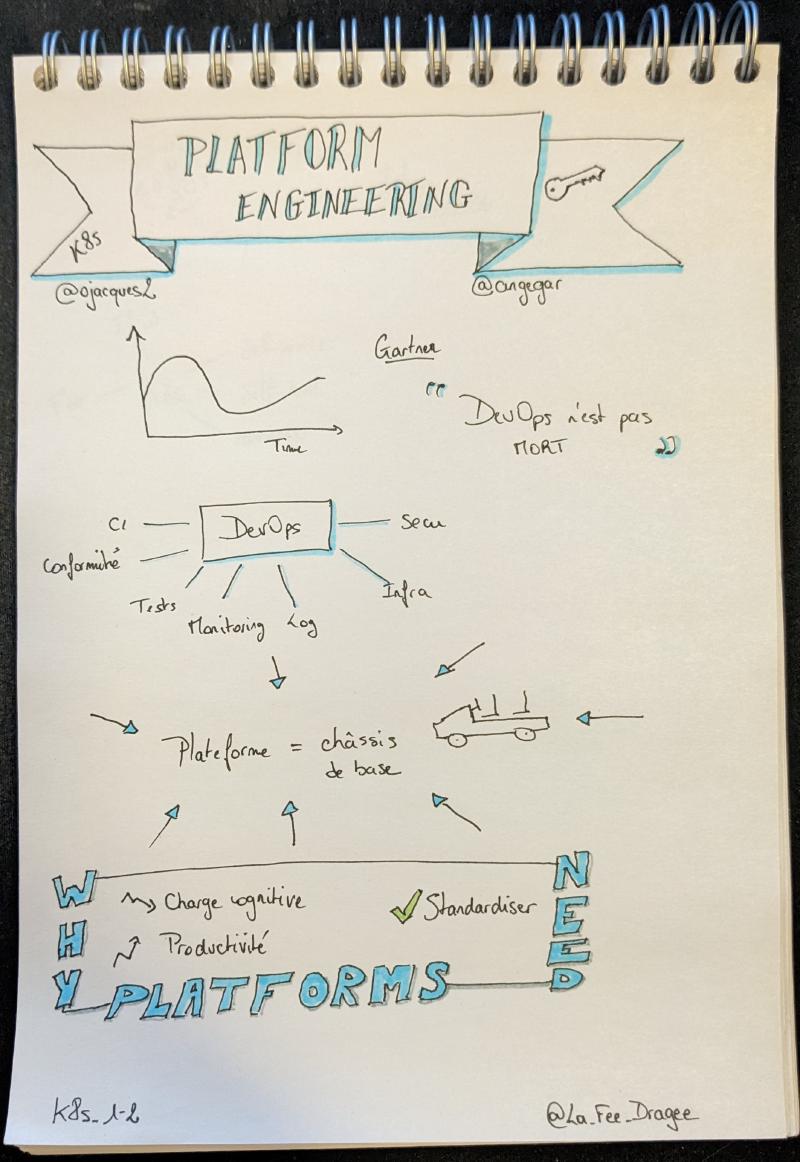 PLATFORM
ENGINEERING
K8s
@ojacques2
@angegar
Gartner
" DevOps n'est pas
MORT "
Time
CI
DevOps
Secu
Conformité
Tests
Monitoring
Log
Infra
Plateforme = châssis
de base
WHY
NEED
Charge cognitive
Standardiser
Productivité
PLATFORMS
K8s_1-2
@La_Fee_Dragee